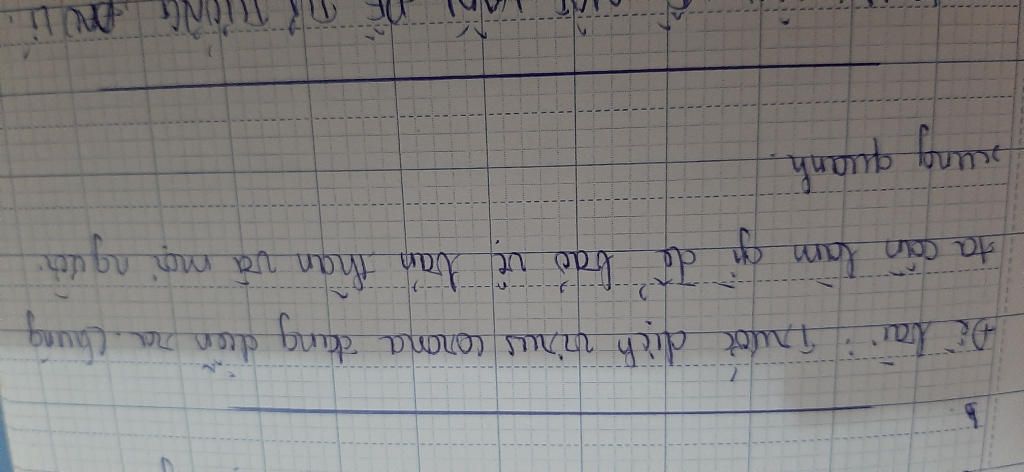 b.
Đề bài: Trước dịch virus corona đang diễn ra. Chúng
ta cần làm gì để bảo vệ bản thân và mọi người
xung quanh.
VẤN ĐỀ TƯ TƯỞNG